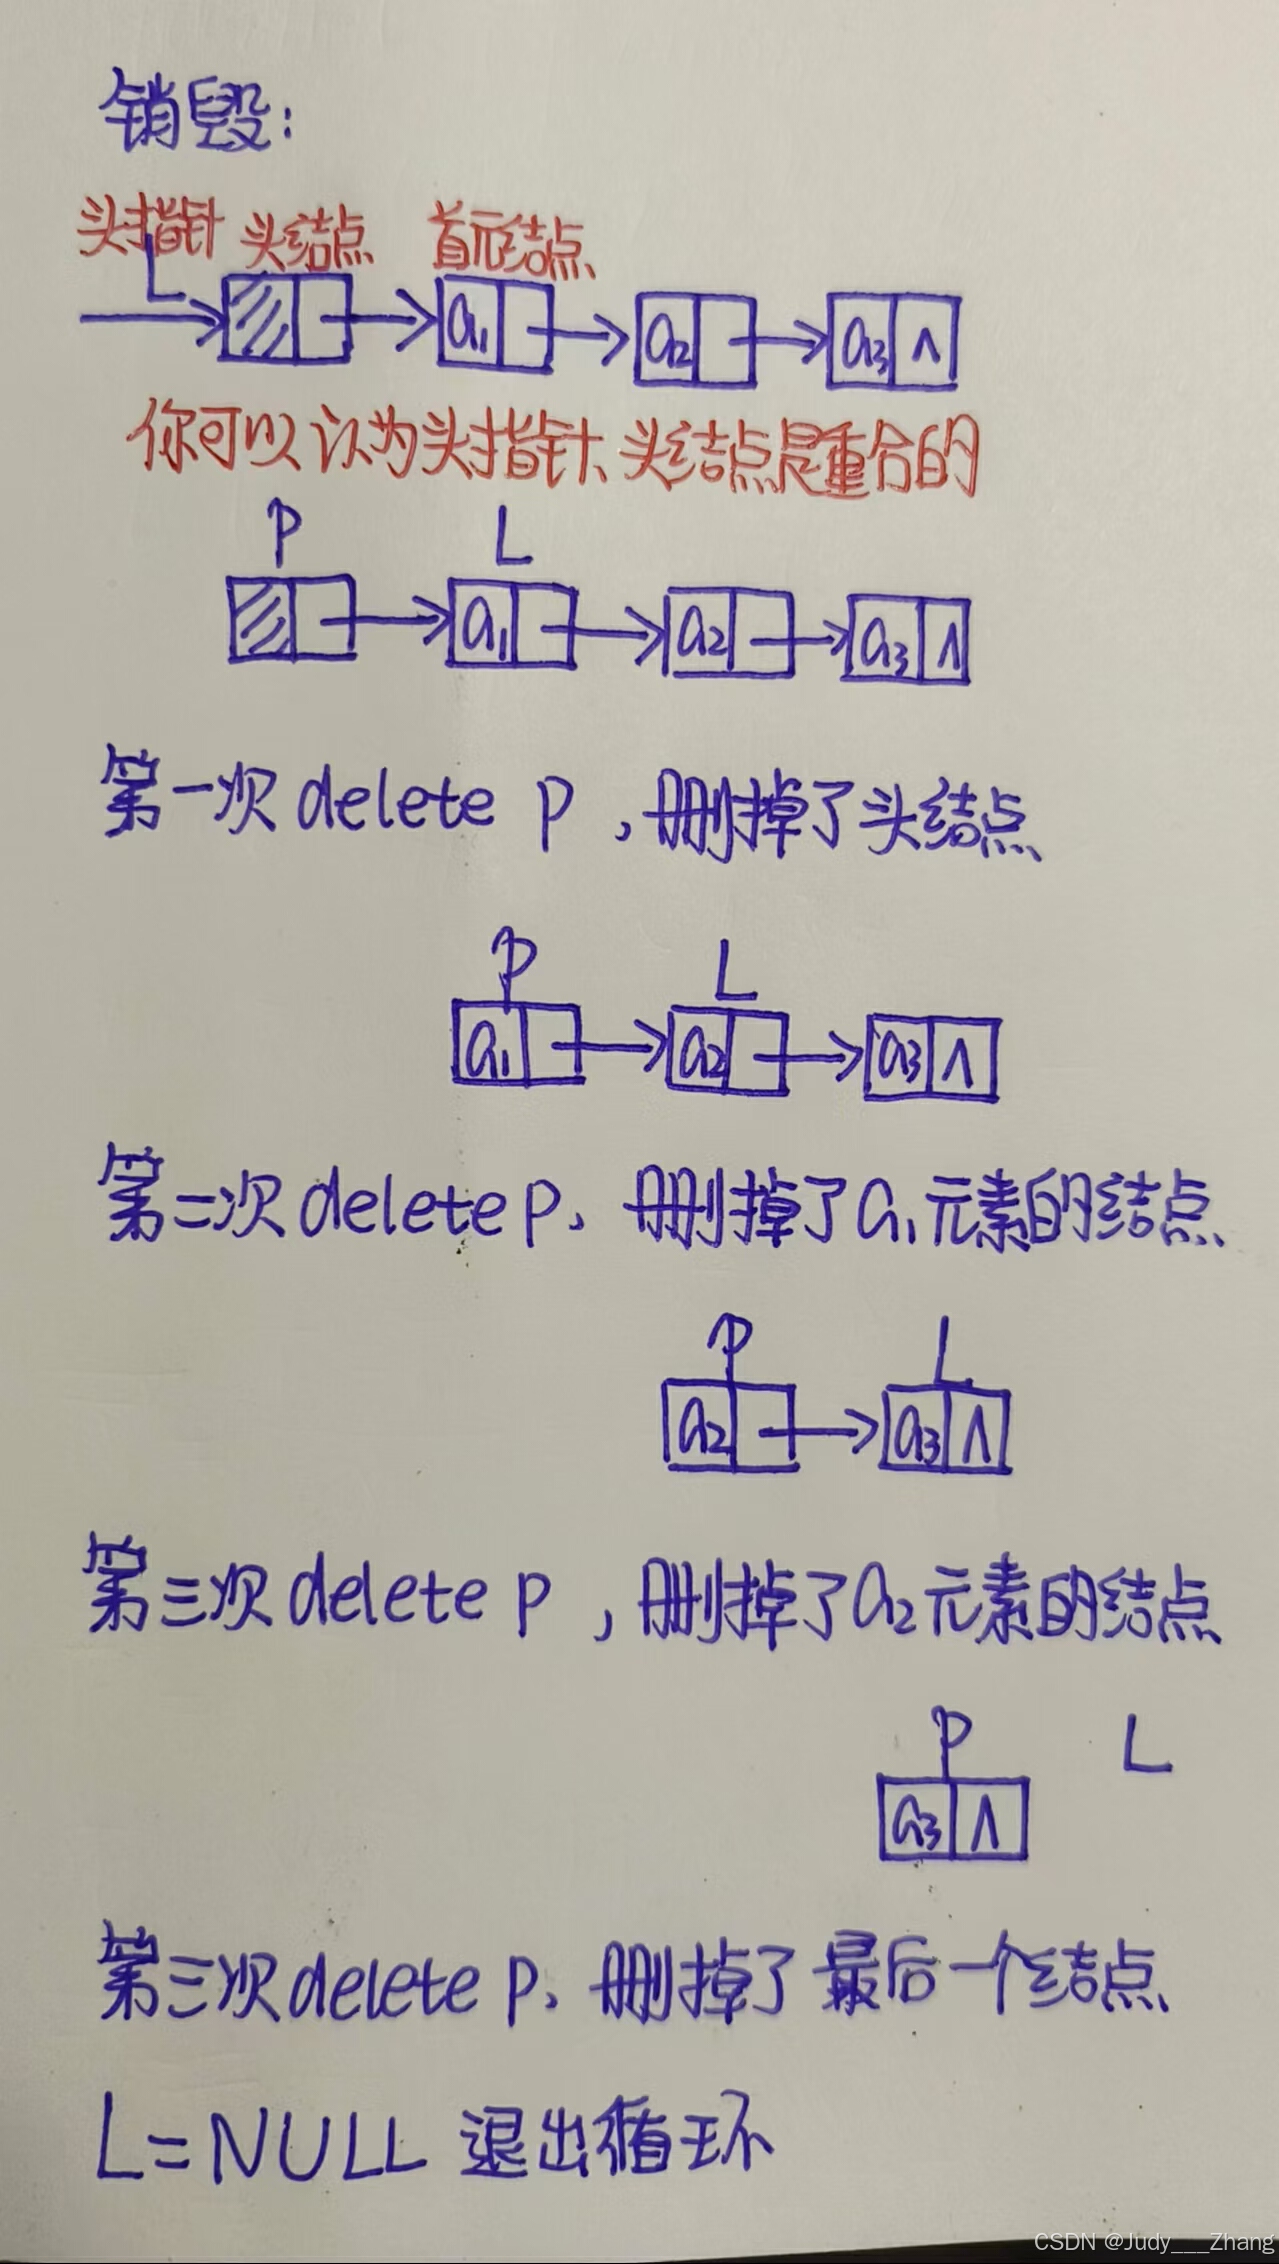 销毁:
头指针 头结点 首元结点
L
a1 a2 a3 ∧
你可以认为头指针、头结点是重合的
P L
a1 a2 a3 ∧
第一次 delete p ,删掉了头结点
P L
a1 a2 a3 ∧
第二次 delete p、删掉了a1元素的结点
P L
a2 a3 ∧
第三次 delete p ,删掉了a2元素的结点
P L
a3 ∧
第三次 delete p、删掉了最后一个结点
L=NULL 退出循环
CSDN @Judy___Zhang